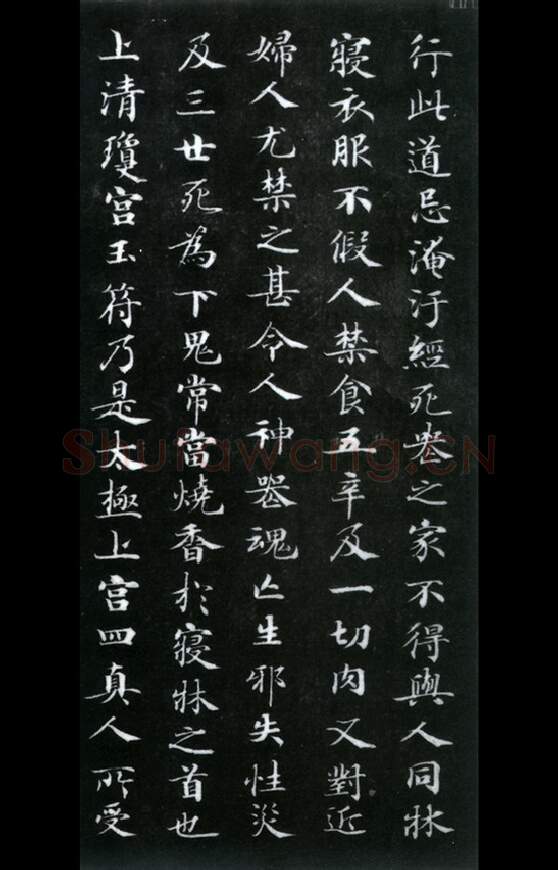 行此道忌淹汙經死喪之家不得與人同牀
寢衣服不假人禁食五辛及一切肉又對近
婦人尤禁之甚令人神喪魂亡生邪失性災
及三世死為下鬼常當燒香於寢牀之首也
上清瓊宮玉符乃是太極上宮四真人所受
Shufawang.CN